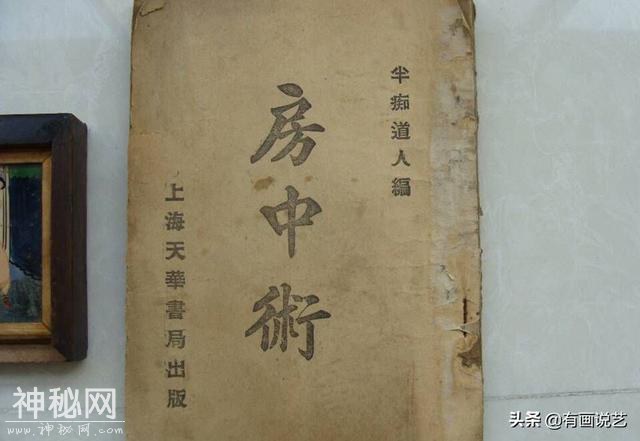 半痴道人編
房中術
上海天華書局出版
神秘网
www.神秘网.com
头条 @有画说艺